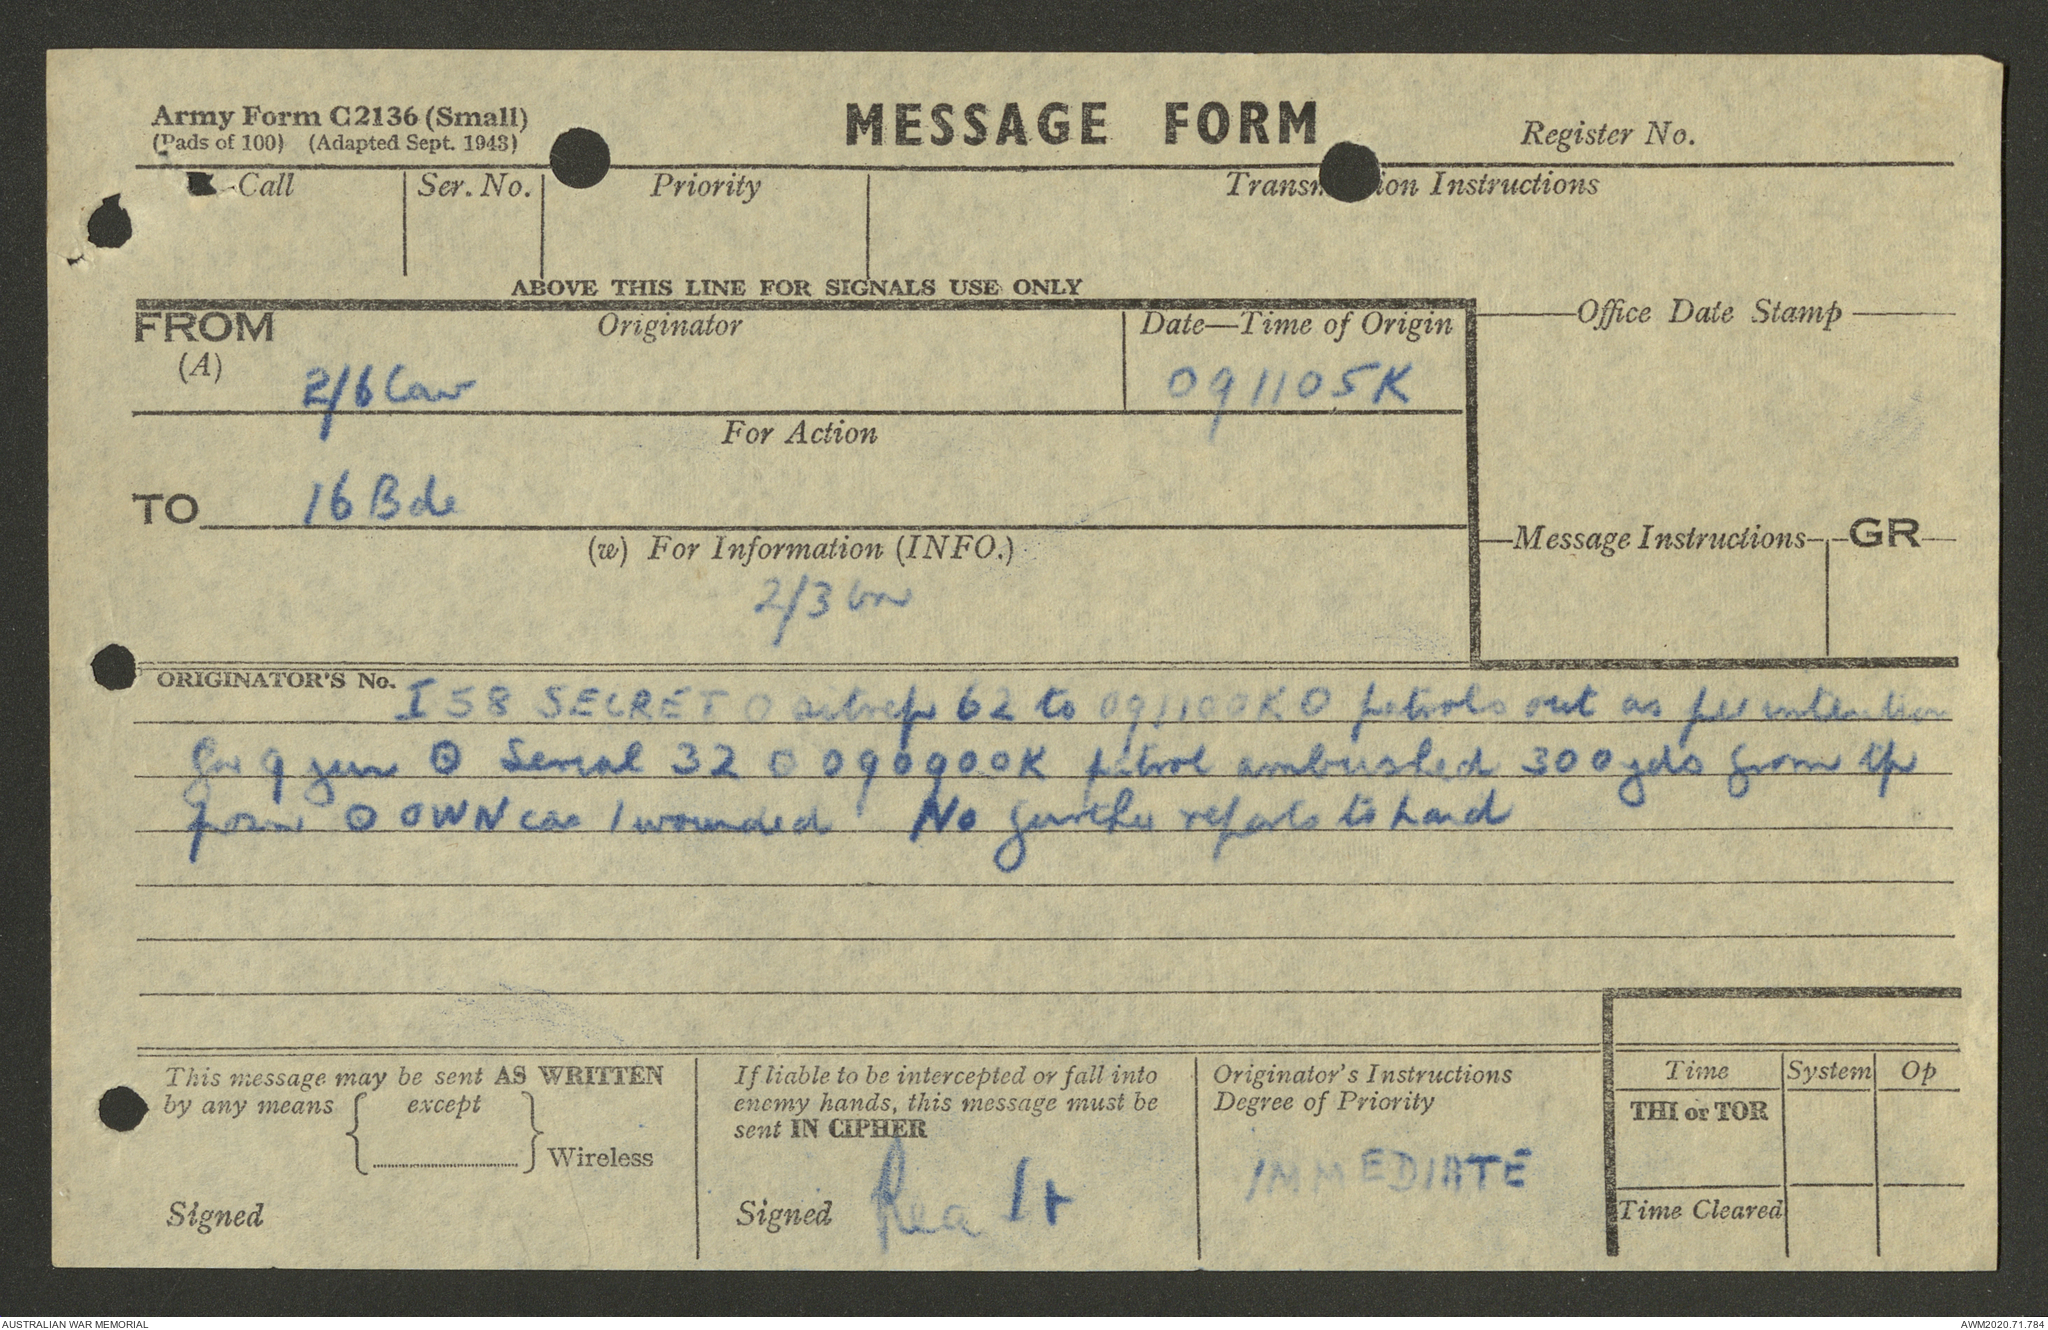 Army Form C2136 (Small)
(Pads of 100) (Adapted Sept. 1943)
MESSAGE FORM
Register No.
Call
Ser. No.
Priority
Transmission Instructions
ABOVE THIS LINE FOR SIGNALS USE ONLY
FROM
(A)
Originator
2/6 Cav
Date—Time of Origin
091105K
Office Date Stamp
For Action
TO
16 Bde
(w) For Information (INFO.)
2/3 bn
Message Instructions
GR
ORIGINATOR'S No.
I 58 SECRET O sitrep 62 to 091100K O patrols out as per intention
for 9 jun O Serial 32 O 090900K patrol ambushed 300 yds from up
posn O OWN cas 1 wounded No further reports to hand
This message may be sent AS WRITTEN
by any means { except
} Wireless
Signed
If liable to be intercepted or fall into
enemy hands, this message must be
sent IN CIPHER
Signed Rea Lt
Originator's Instructions
Degree of Priority
IMMEDIATE
Time
System
Op
THI or TOR
Time Cleared
AUSTRALIAN WAR MEMORIAL
AWM2020.71.784